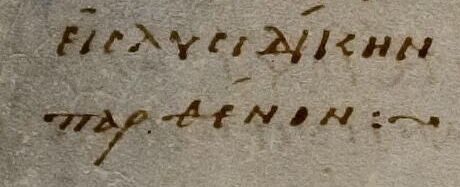 εἰς λυσιδίκην
παρθένον :~